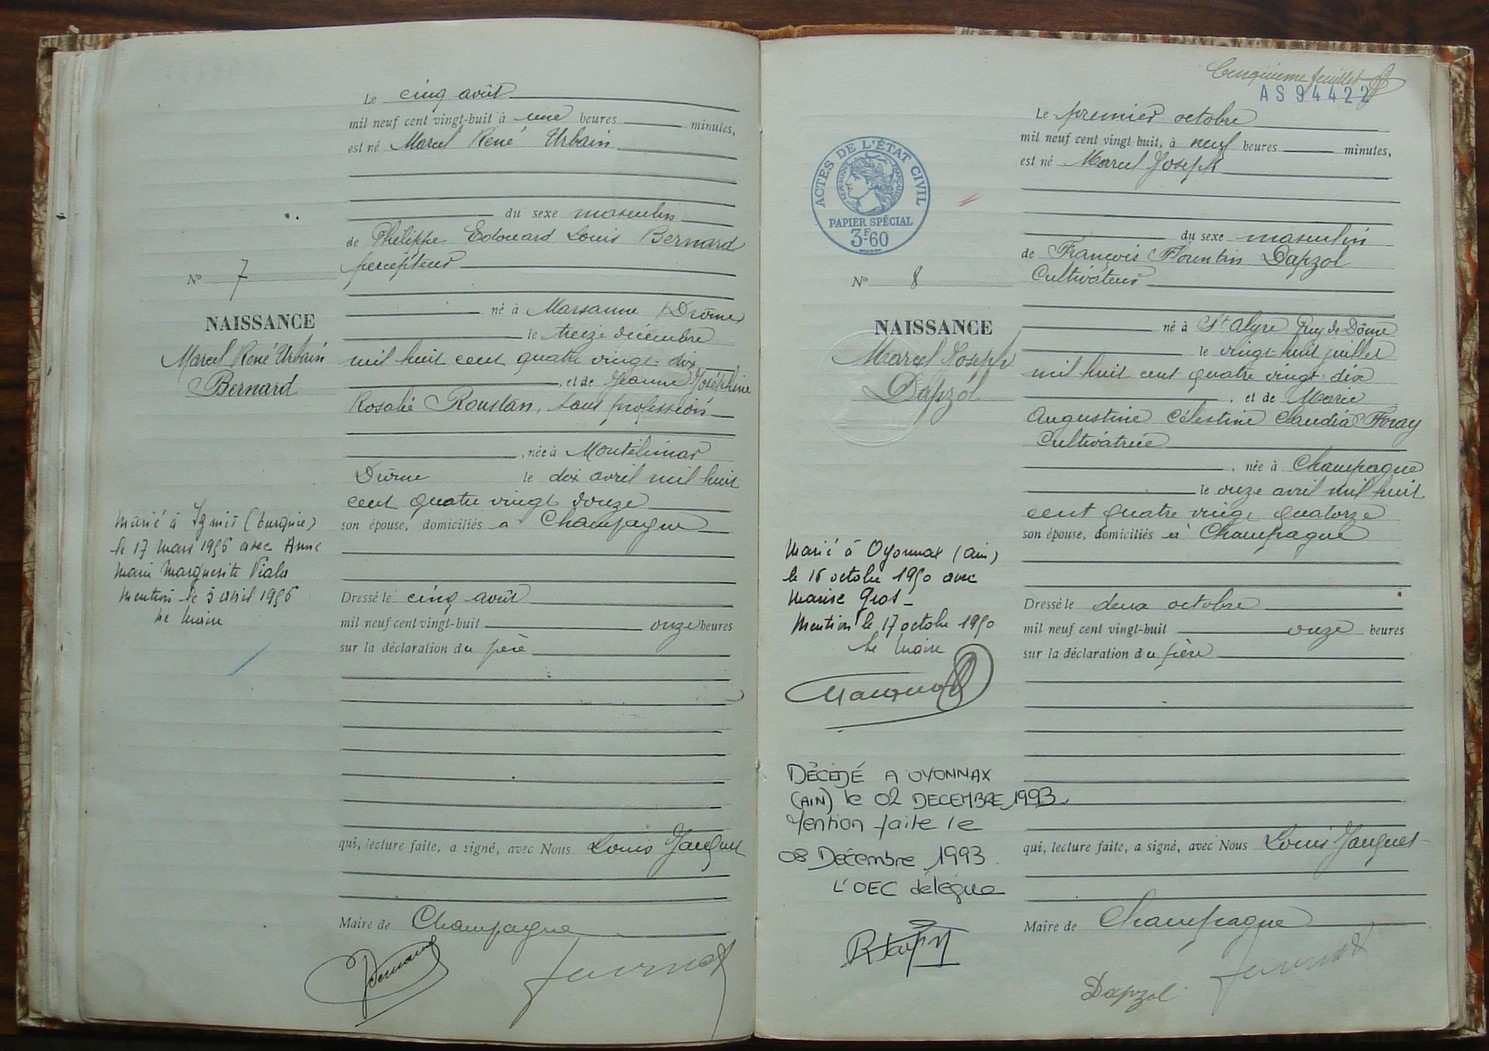 Le cinq août
mil neuf cent vingt-huit à une heures minutes,
est né Marcel René Urbain
du sexe masculin
de Philippe Edouard Louis Bernard
percepteur
né à Marsanne (Drôme)
le treize décembre
mil huit cent quatre vingt dix
, et de Jeanne Joséphine
Rosalie Roustan, sans profession
, née à Montélimar
Drôme le dix avril mil huit
cent quatre vingt douze
son épouse, domiciliés à Champagne
Dressé le cinq août
mil neuf cent vingt-huit onze heures
sur la déclaration du père
qui, lecture faite, a signé, avec Nous Louis
Maire de Champagne
Bernard
N° 7
NAISSANCE
Marcel René Urbain
Bernard
Marié à (turquie)
le 17 mars 1956 avec Anne
Marie Marguerite
Mention le 5 avril 1956
Le Maire
Cinquième feuillet
AS 94422
Le premier octobre
mil neuf cent vingt huit, à neuf heures minutes,
est né Marcel Joseph
du sexe masculin
de François Florentin Dapzol
Cultivateur
né à St Alyre Puy de Dôme
le vingt huit juillet
mil huit cent quatre vingt dix
, et de Marie
Augustine Célestine Claudia Foray
Cultivatrice
, née à Champagne
le onze avril mil huit
cent quatre vingt quatorze
son épouse, domiciliés à Champagne
Dressé le deux octobre
mil neuf cent vingt-huit onze heures
sur la déclaration du père
qui, lecture faite, a signé, avec Nous Louis
Maire de Champagne
Dapzol
ACTES DE L'ÉTAT CIVIL
PAPIER SPÉCIAL
3F.60
N° 8
NAISSANCE
Marcel Joseph
Dapzol
Marié à Oyonnax (ain)
le 16 octobre 1950 avec
Marise Gros
Mention le 17 octobre 1950
Le Maire
DÉCÉDÉ A OYONNAX
(AIN) le 02 DECEMBRE 1993
Mention faite le
08 Décembre 1993.
L'OEC délégué